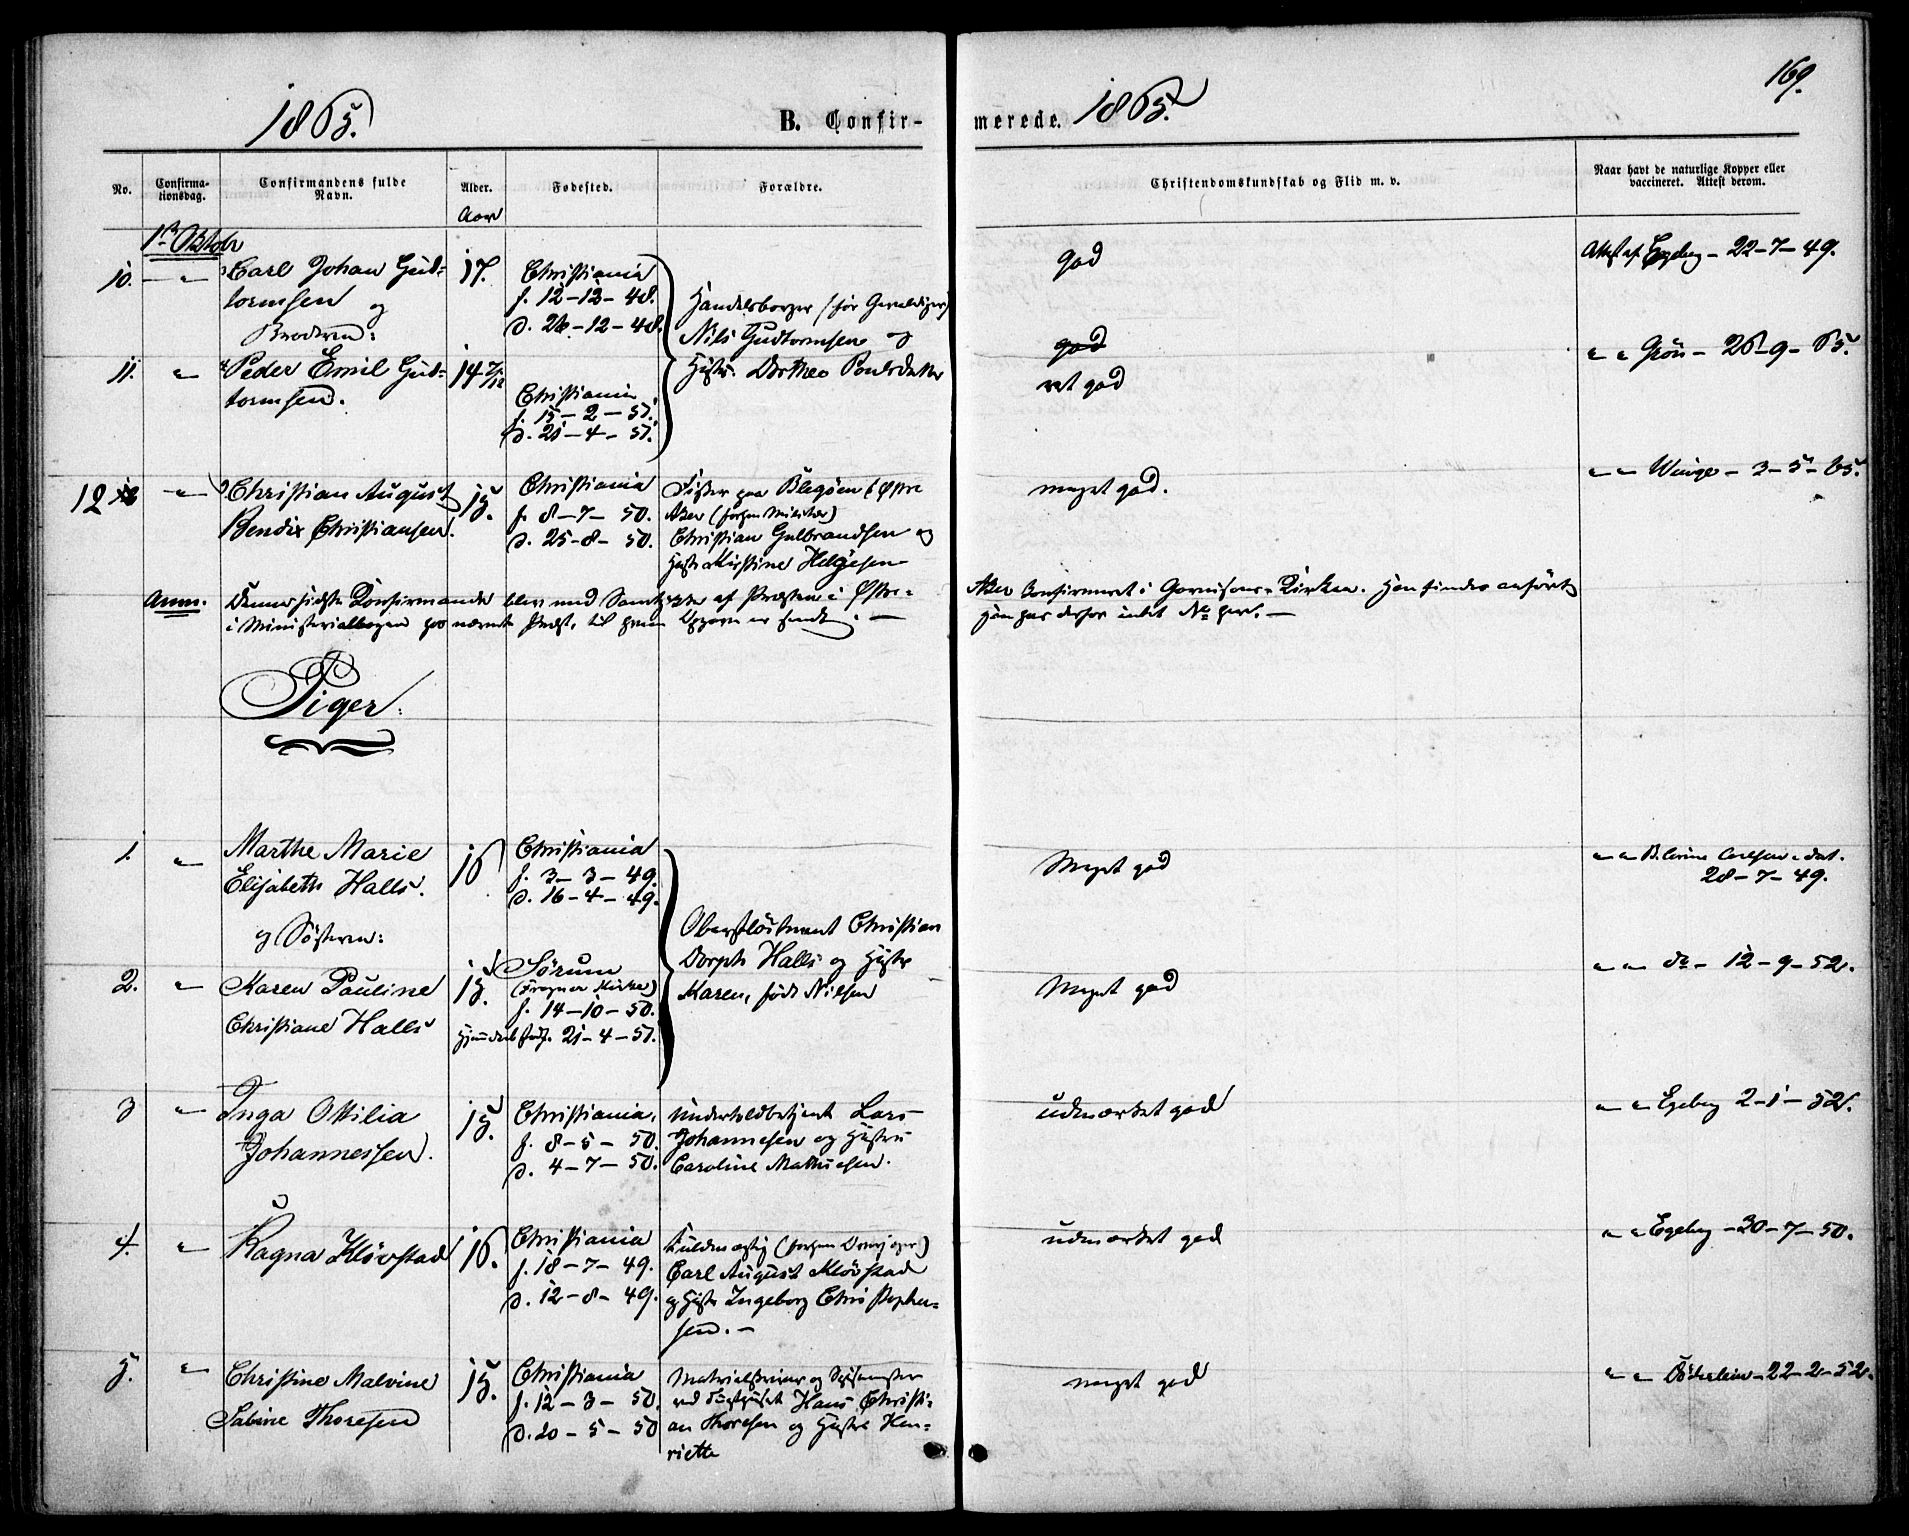 169.
1865.
B. Confir-
merede. 1865.
No.
Confirma-
tionsdag.
Confirmandens fulde
Navn.
Alder.
Fødested.
Forældre.
Christendomskundskab og Flid m. v.
Naar havt de naturlige Kopper eller
vaccineret. Attest derom.
Aar
1ste Oktobr
10. — „ Carl Johan Gud- 17. Christiania god Attest af Egeberg - 22-7-49.
tormsen f. 12-12-48. Handelsborger (før
og d. 26-12-48. Nils Gudtormsen og
Broderen: god
11. „ Peder Emil Gud- 14 7/12 Hustr. Dorthea Poulsdatter ret god „ „ Grön - 26-9-65.
tormsen. Christiania
f. 15-2-51.
d. 21-4-51.
12 „ Christian August 15. Christiania Fisker paa Blegöen i Østre meget god. „ „ Winge - 3-5-65.
Bendix Christiansen. f. 8-7-50. Aker (forhen Militær)
d. 25-8-50. Christian Gulbrandsen og
Hustr. Kirstine Helgesen
Anm. Denne sidste Konfirmand blev med Samtykke af Præsten i Østre- Aker konfirmeret i Garnisons-Kirken. Han findes anført
i Ministerialbogen hos nævnte Præst, til hvem Opgave er sendt. — Han har derfor intet No her. —
Piger.
1. „ Marthe Marie 16 Christiania Meget god „ „ Carlsen - dat.
Elisabeth Halls. f. 3-3-49. 28-7-49.
d. 16-4-49.
og Søsteren: Oberstløitnant Christian
Dorph Halls og Hustr
2. „ Karen Pauline 15. Sørum Karen, født Nilsen Meget god „ „ do - 12-9-52.
(Frogner Kirke)
Christiane Halls f. 14-10-50.
Hjemdøbt 21-4-51.
3 „ Inga Ottilia 15. Christiania, Underholdbetjent Lars udmærket god „ „ Egeberg 2-1-52.
Johannessen. f. 8-5-50. Johannesen og Hustru
d. 4-7-50. Caroline Mathiesen.
4. „ Ragna Kløvstad 16. Christiania Fuldmægtig (forhen ) udmærket god „ „ Egeberg - 30-7-50.
f. 18-7-49. Carl August Kløvstad
d. 12-8-49. og Hustr Ingeborg Christophe-
sen. —
5. „ Christine Malvine 15. Christiania Materialskriver og meget god „ „ Döderlein - 22-2-52.
Sabine Thoresen f. 12-3-50. ved Hans Christi-
d. 20-5-50 an Thoresen og Hustru Hen-
riette